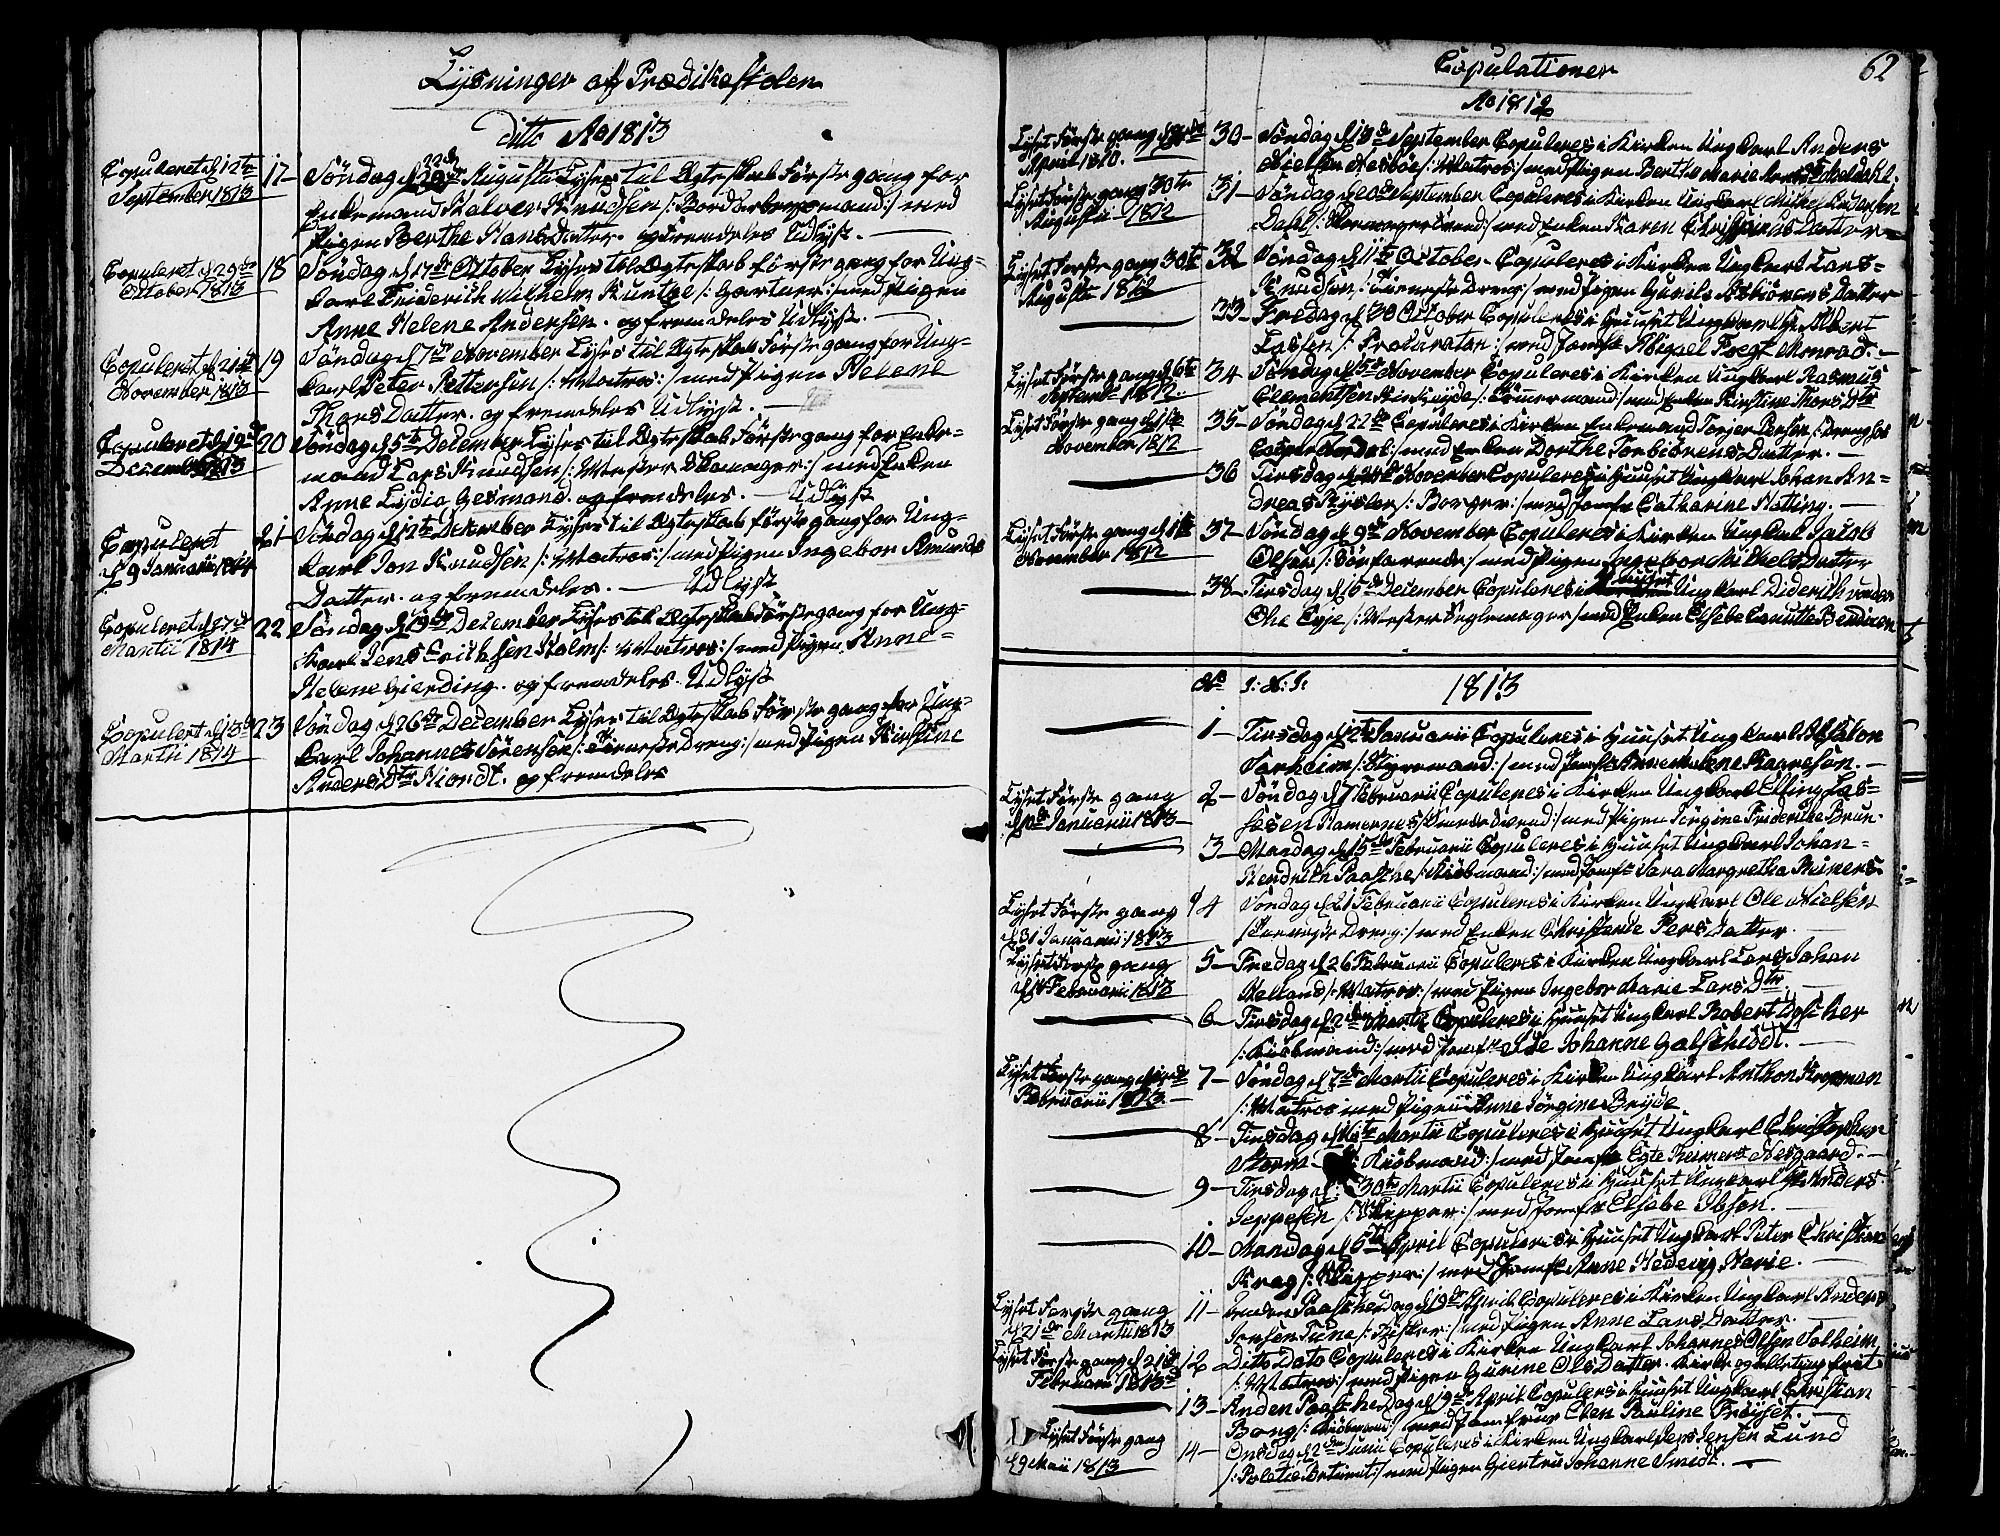 Lysninger af Prædikestolen
ditto Ao 1813
Copuleret d 12te
September 1813
17 – Søndag d 22de Augusti Lyses til Ægteskab Første gang for
Enkemand Halvor Knudsen /: Bordarbeysmand :/ med
Pigen Berthe Hans Datter. og fremdeles Udlyst. —
Copuleret d 29de
October 1813
18 Søndag d 17de October Lyses til Ægteskab første gang for Ung-
karl Friderich Wilhelm Kuntze /: Gartner :/ med Pigen
Anne Helene Andersen. og fremdeles Udlyst. —
Copuleret d 21de
November 1813
19 Søndag d 7de November Lyses til Ægteskab Første gang for Ung-
karl Peter Pettersen /: Matros :/ med Pigen Helene
Thors Datter. og fremdeles Udlyst. —
Copuleret d 19de
December 1813
20 Søndag d 5te December Lyses til Ægteskab Første gang for Enke-
mand Lars Knudsen /: Mester Skomager :/ med Enken
Anne Lydia Gesmand. og fremdeles. — Udlyst
Copuleret
d 9 Januarii 1814
21 – Søndag d 12te December Lyses til Ægteskab første gang for Ung-
karl Jon Knudsen /: Matros :/ med Pigen Ingebor Amunds
Datter. og fremdeles. — Udlyst
Copuleret d
Martii 1814
22 Søndag d 19de December Lyses til Ægteskab første gang for Ung-
Karl Jens Erichsen Holm /: Matros :/ med Pigen Anne-
Helene Gierding. og fremdeles. Udlyst
Copulert d 13d
Martii 1814
23 Søndag d 26de December Lyses til Ægteskab Første gang for Ung-
Karl Johannes Sørensen /: Tieneste Dreng :/ med Pigen Kirstine
Anders Dtr Niordt. og fremdeles
Copulationer
62
Ao 1812
Lyset Første gang d
April 1810.
30 – Søndag d September Copuleres i Kirken Ungkarl Anders
Nielsen Nesbøe /: Matros :/ med Pigen Berthe Marie
Lyset Første gang 30te
Augusti 1812
31 – Søndag d 20de September Copuleres i Kirken Ungkarl Michel Andersen
Dahl med Enken Karen Christians Datter –
Lyset Første gang 30te
Augusti 1812
32 Søndag d 11te October Copuleres i Kirken Ungkarl Lars-
Knudsen /: Tieneste Dreng :/ med Pigen Gunild Asbiørens Datter
33 – Fredag d 30 October Copuleres i Huuset Ungkarl Hr Albert
Lassen /: Procurator :/ med Jomfr Abigael Foegt Monrad. —
Lyset Første gang d 6te
Septemb 1812.
34 Søndag d 15de November Copuleres i Kirken Ungkarl Rasmus
Clementsen /: Tømermand :/ med Enken Kirstine Thors Dtr
Lyset Første gang d 1ste
November 1812
35 – Søndag d 22de Copuleres i Kirken Enkemand Torjer Jensen
med Enken Dorthe Torbiørens Datter. —
36 Tirsdag d November Copuleres i Huuset Ungkarl Johan An-
dreas Rysler /: Borger :/ med Jomfr Catharine Natting. —
Lyset Første gang d 1ste
November 1812
37 – Søndag d 9de November Copuleres i Kirken Ungkarl Jacob
Olsen /: Søefarende :/ med Pigen Ingebor Michels Datter
38 – Tirsdag d 15de December Copuleres i Huuset Ungkarl Diderich von der
Ohe Eyse /: Mester Seglemager :/ med Enken Elsebe Canutte Bendixen
No I: N: I: 1813
1 – Tirsdag d 12te Januarii Copuleres i Huuset Ungkarl Absalon
Varheim /: Styrmand :/ med Jomfr Anne Helene Kaaresøn. —
Lyset Første gang
d 10de Januarii 1813 –
2 – Søndag d 7 Februarii Copuleres i Kirken Ungkarl Elling Las-
sesen Hamernes med Pigen Jørgine Friderikke Brun.
3 – Mandag d 15de Februarii Copuleres i Huuset Ungkarl Johan-
Hendrich Paasche /: Kiøbmand :/ med Jomfr Sara Margretha Reimers.
Lyset Første gang
d 31 Januarii 1813
4 Søndag d 21 Februarii Copuleres i Kirken Ungkarl Ole Nielsen
Dreng :/ med Enken Christense Pers Datter. —
Lyset Første gang
d 14 Februarii 1813
5 – Fredag d 26 Februarii Copuleres i Kirken Ungkarl Lars Johan
Helland /: Matros :/ med Pigen Ingebor Marie Lars Dtr.
6 – Tirsdag d 2de Martii Copuleres i Huuset Ungkarl Robert Døscher
/: Kiøbmand :/ med Jomfr Ide Johanne Galschiødt. —
Lyset Første gang d
Februarii 1813. –
7 – Søndag d 7de Martii Copuleres i Kirken Ungkarl Anthon Kropman
/: Matros med Pigen Anne Jørgine Bryde
8 – Tirsdag d 16te Martii Copuleres i Huuset Ungkarl Christopher
Storm /: Kiøbmand :/ med Jomfr Egte Reimert Nesgaard. —
9 – Tirsdag d: 30te Martii Copuleres i Huuset Ungkarl Hr Anders
Jeppesen /: Skipper :/ med Jomfr Elsebe Ibsen. —
10 – Mandag d 5te April Copuleres i Huuset Ungkarl Peter Christian
Krag /: Skipper :/ med Jomfr Anne Hedevig Harie. —
Lyset Første gang
d 21de Martii 1813
11 – Anden Paaskedag d 19de April Copuleres i Kirken Ungkarl Anders
Jonsen Tune /: Fisker :/ med Pigen Anne Lars Datter. —
Lyset Første gang d 21de
Februarii 1813
12 Ditto Dato Copuleres i Kirken Ungkarl Johannes Olsen Solheim
/: Matros :/ med Pigen Gurine Ols Datter. Kirke og alleting frit
13 – Anden Paaske Dag d 19de April Copuleres i Huuset Ungkarl Christian
Bong /: Kiøbmand :/ med Jomfrue Elen Pauline Frøyset. —
Lyset Første gang
d 9 Maii 1813
14 – Onsdag d 2den Junii Copuleres i Kirken Ungkarl Jens Jensen Lund
/: Politie Betient :/ med Pigen Giertru Johanne Smidt. —